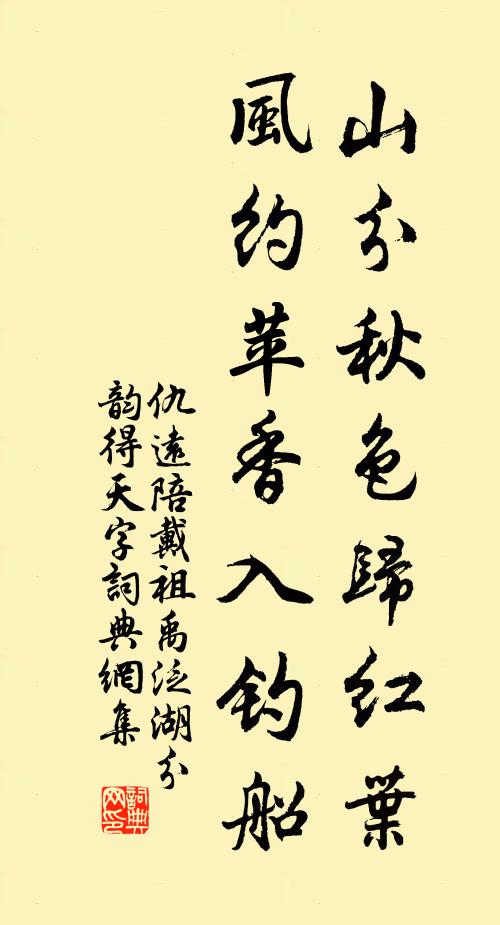 山分秋色歸红葉
風约苹香入钓船
仇遠陪戴祖禹泛湖分
韵得天字詞典網集
詞典网印